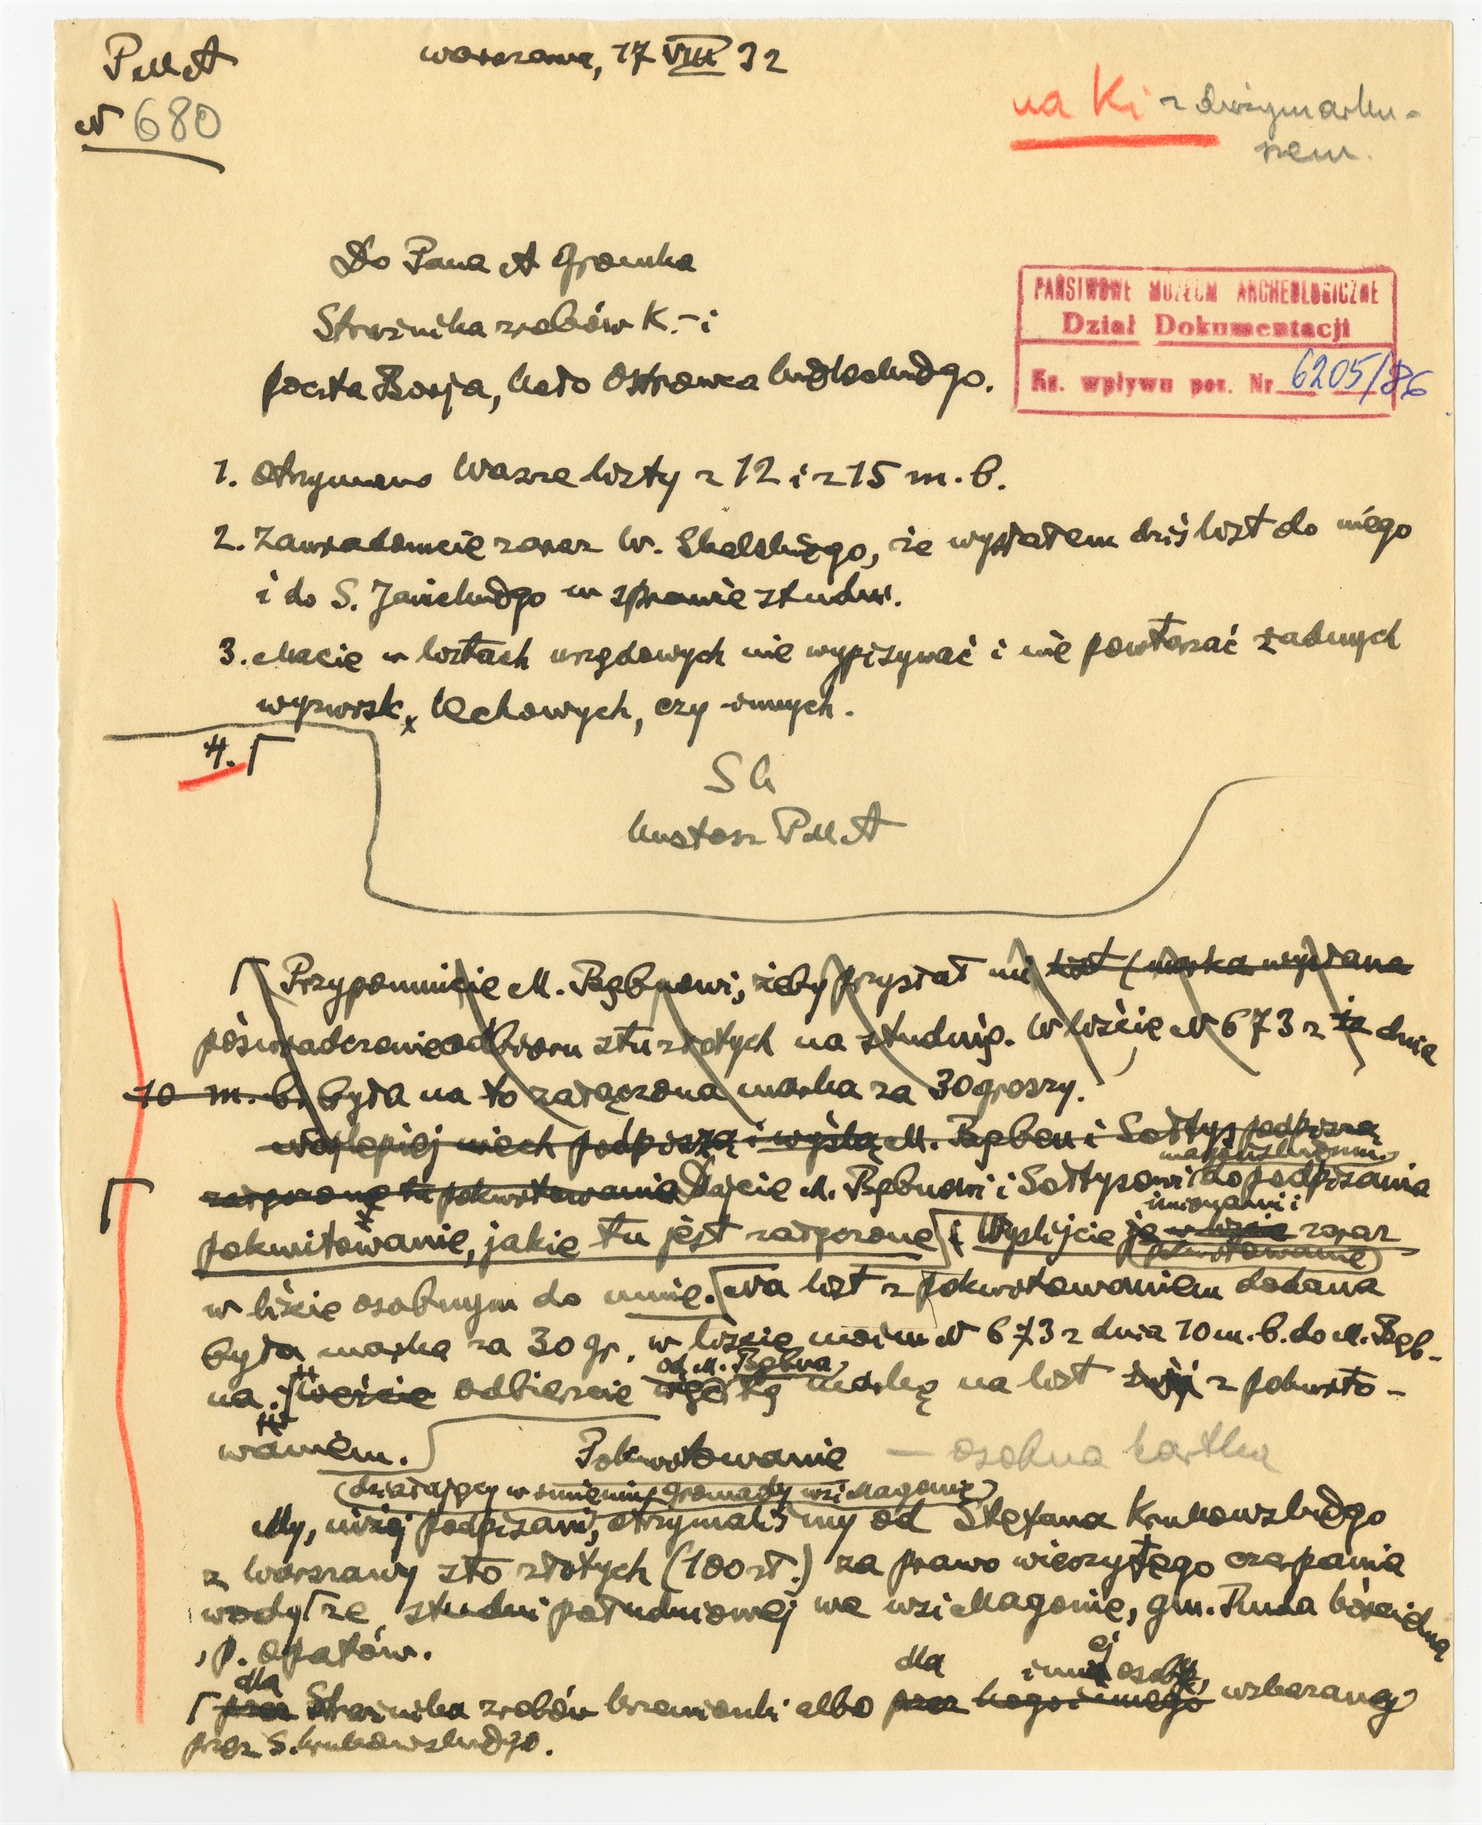 PMA
Warszawa, 17 VIII 32
N 680
na Ki z dwójmarku-
szem.
Do Pana A Gromka
Strażnika zrębów K.-i
poczta Borja, koło Ostrowca kieleckiego.
PAŃSTWOWE MUZEUM ARCHEOLOGICZNE
Dział Dokumentacji
Ks. wpływu poz. Nr 6205/86
1. Otrzymano Wasze listy z 12 i z 15 m. b.
2. Zawiadomcie zaraz W. Skalskiego, że wysłałem dziś list do niego
i do S. Janickiego w sprawie studni.
3. Macie w listach urzędowych nie wypisywać i nie powtarzać żadnych
wyzwisk, Lechowych, czy innych.
4.
SK
kustosz PMA
Przypomnicie M. Bębnowi, żeby przysłał mi list (marka wysłana
poświadczenie odbioru stu złotych na studnię. W liście N 673 z dnia
10 m. b. była na to załączona marka za 30 groszy.
Najlepiej niech podpiszą i wyślą M. Bęben i Sołtys podpiszą
załączone tu pokwitowania Dajcie M. Bębnowi i Sołtysowi do podpisania
imionami i
pokwitowanie, jakie tu jest załączone i Wyślijcie je w liście zaraz
pokwitowanie
w liście osobnym do mnie. Na list z pokwitowaniem dodana
była marka za 30 gr. w liście moim N 673 z dnia 10 m. b. do M. Bęb-
od M. Bębna
na. Weźcie odbierzcie marką na list z pokwito-
waniem.
Pokwitowanie — osobna kartka
(działający w imieniu gromady wsi Magonie)
My, niżej podpisani, otrzymaliśmy od Stefana Krukowskiego
z Warszawy sto złotych (100 zł.) za prawo wieczystego czerpania
wody ze studni południowej we wsi Magonie, gm. Ruda kościelna
, p. Opatów.
dla dla innej osoby,
przez Strażnika zrębów krzemionki albo przez kogo innego wskazanej
przez S. Krukowskiego.